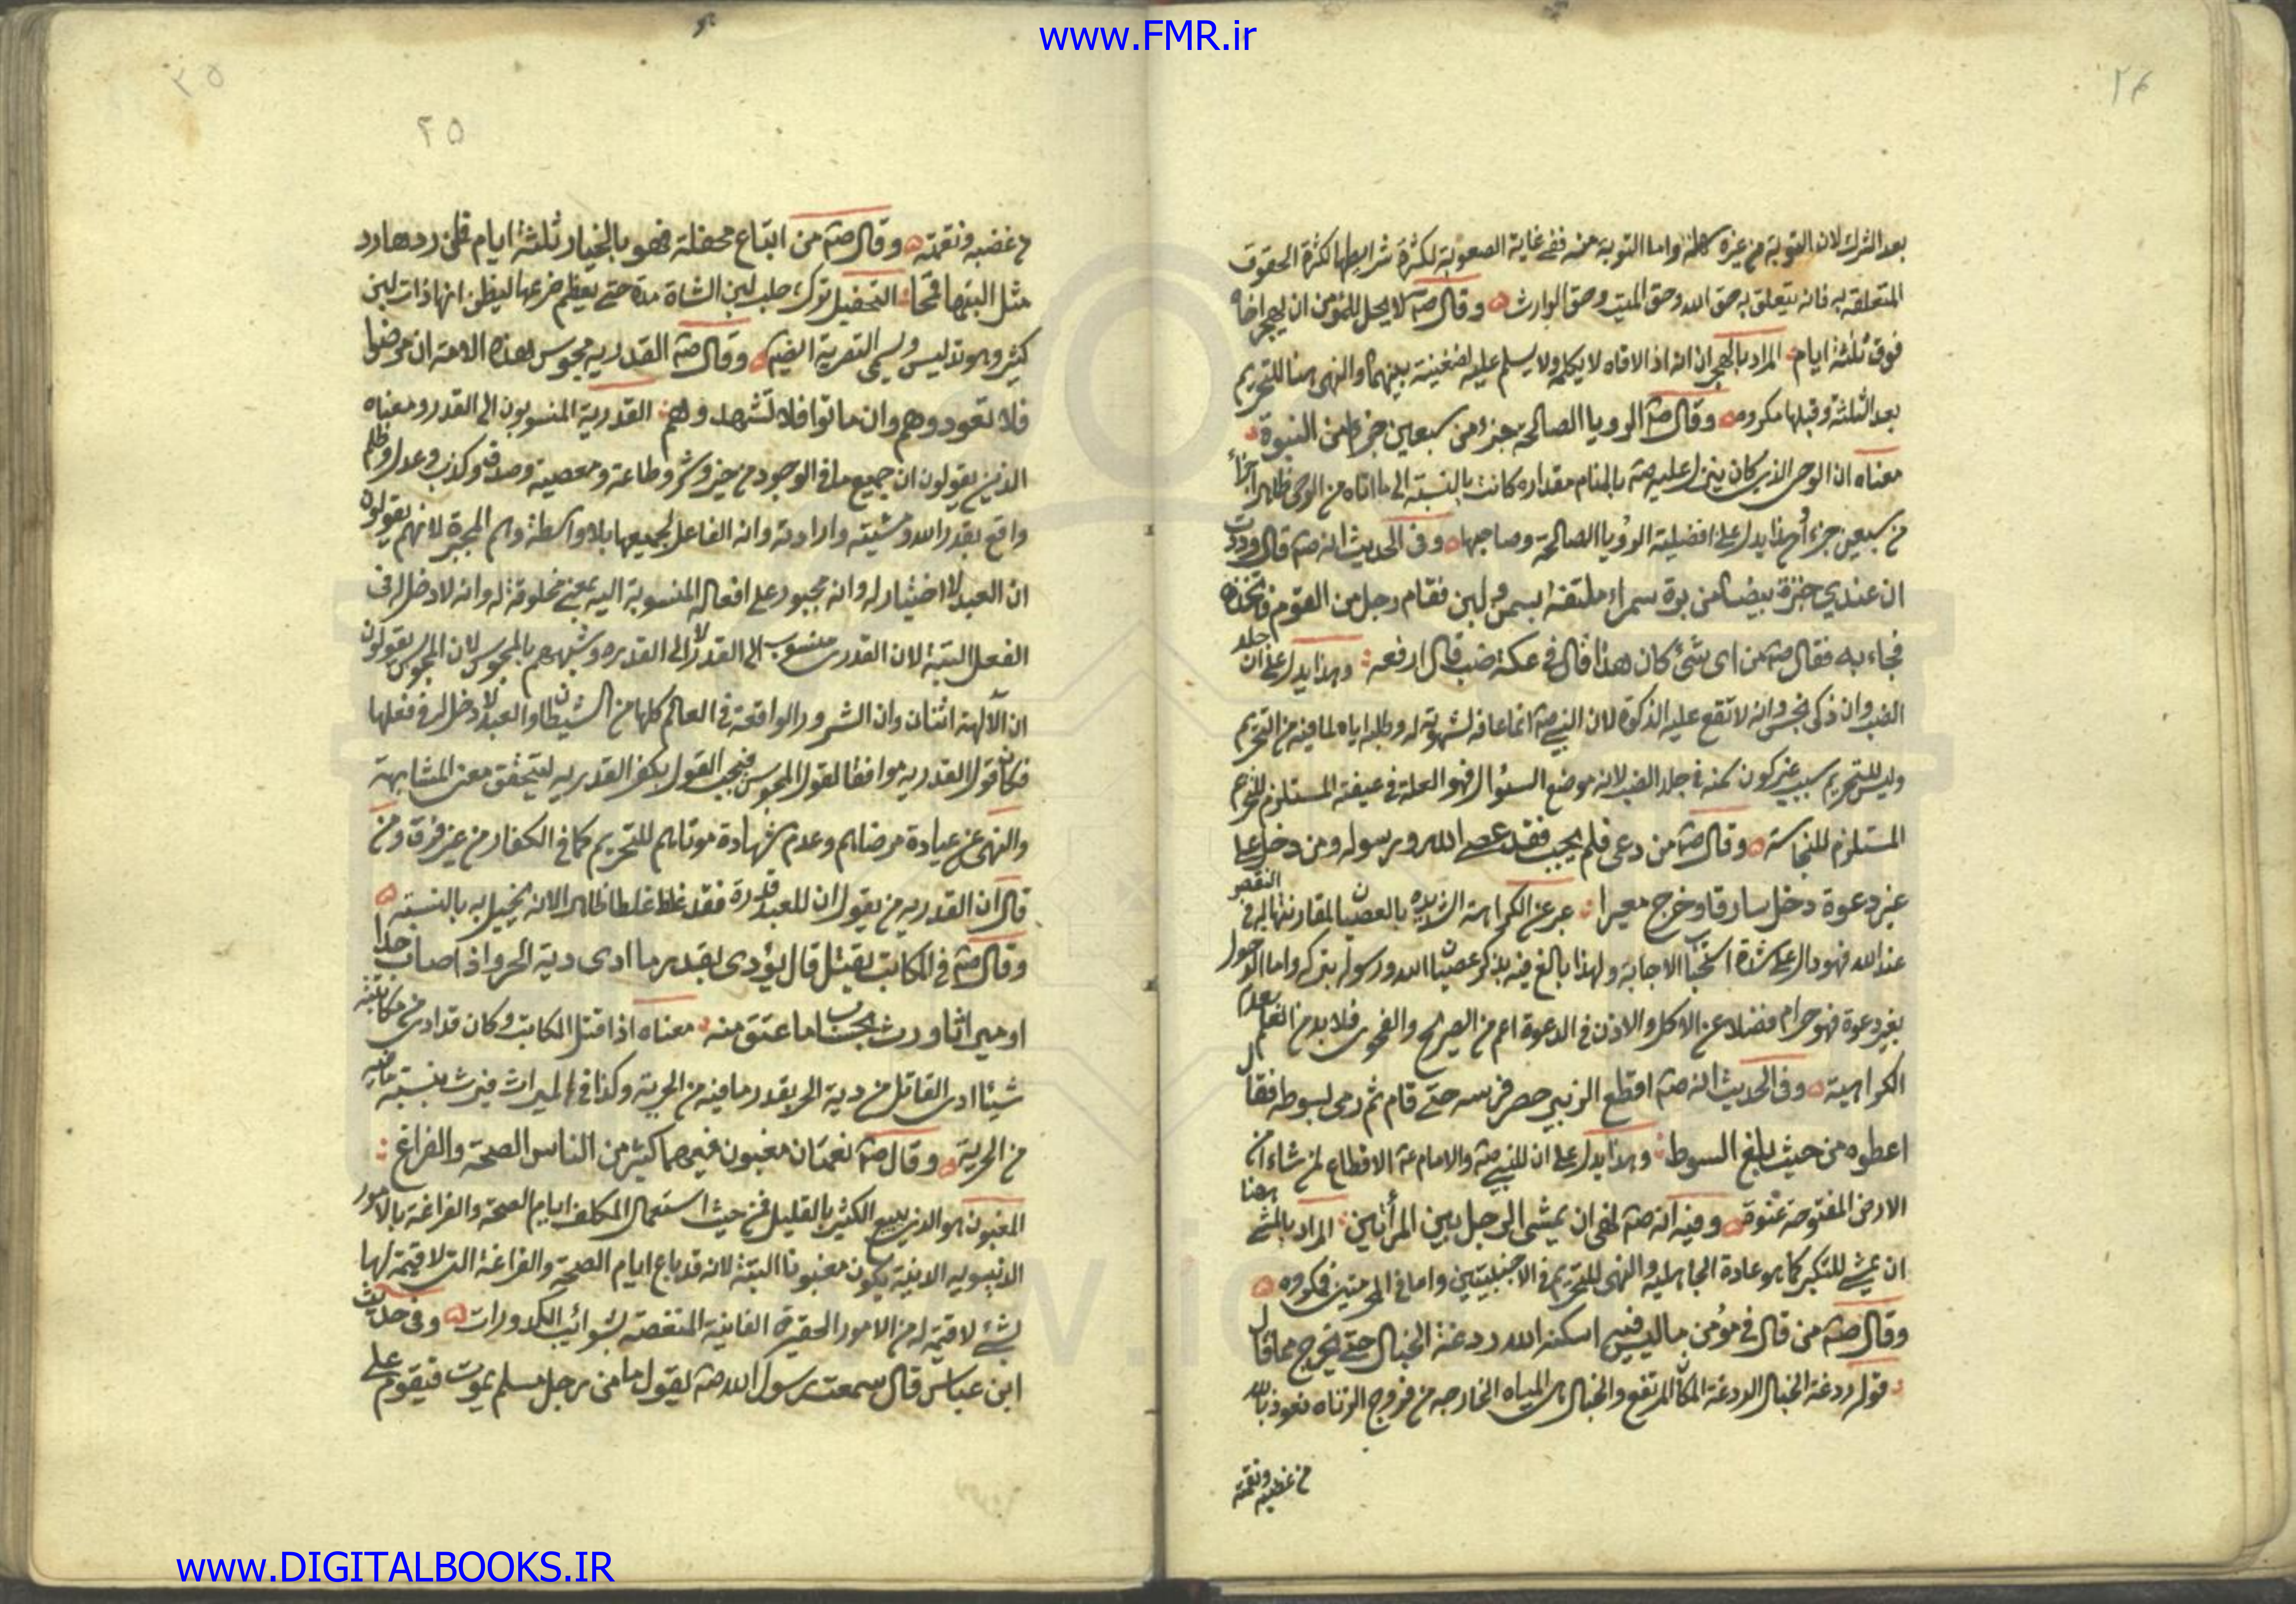 www.FMR.ir
۲۴
بعد الشرك لان التوبة من غيره كله واما التوبة منه ففي غاية الصعوبة لكثرة شرايطها لكثرة الحقوق
المتعلقة به فانه يتعلق به حق الله وحق الميت وحق الوارث وقال صم لا يحل للمؤمن ان يهجر اخاه
فوق ثلثة ايام المراد بالهجران انه اذا لاقاه لا يكلمه ولا يسلم عليه لضغينة بينهما والنهي هنا للتحريم
بعد الثلثة وقبلها مكروه وقال صم الرويا الصالحة جزء من سبعين جزءا من النبوة
معناه ان الوحي الذي كان ينزل عليه صم بالمنام مقداره كانت بالنسبة الى ما اتاه من الوحي ظاهرا جزأ
من سبعين جزءا وهذا يدل على افضلية الرؤيا الصالحة وصاحبها وفي الحديث انه صم قال وددت
ان عندي خبزة بيضاء من برة سمراء ملتقة بسمن ولبن فقام رجل من القوم فاتخذه
فجاء به فقال صم من اى شئ كان هذا قال في عكة ضب قال ارفعه وهذا يدل على ان جلد
الضب وان ذكى نجس وانه لا تقع عليه الذكوة لان النبي صم انما عافه لشهوته له وطلبه اياه لما فيه من التحريم
وليس للتحريم سبب غير كون سمنه في جلد الضب لانه موضع السئوال فهو العلة في عيفته المستلزم للتحريم
المستلزم للنجاسة وقال صم من دعى فلم يجب فقد عصى الله ورسوله ومن دخل على
غير دعوة دخل سارقا وخرج معيرا عبر عن الكراهة الشديده بالعصيان لمقارنتها له في النقص
عند الله فهو دال على شدة استحباب الاجابة ولهذا بالغ فيه بذكر عصيان الله ورسوله بتركه واما الدخول
بغير دعوة فهو حرام فضلا عن الاكل والاذن في الدعوة اعم من الصريح والفحوى فلا بد من العلم بعدم
الكراهية وفي الحديث انه صم اقطع الزبير حصر فرسه حتى قام ثم رمى بسوطه فقال
اعطوه من حيث بلغ السوط وهذا يدل على ان للنبي صم والامام عم الاقطاع لمن شاء من
الارض المفتوحة عنوة وفيه انه صم نهى ان يمشى الرجل بين المرأتين المراد بالمشى هنا
ان يمشي للتكبر كما هو عادة الجاهلية والنهى للتحريم في الاجنبيتين واما في المحرمتين فمكروه
وقال صم من قال في مؤمن ما ليس فيه اسكنه الله ردغة الخبال حتى يخرج مما قال
قوله ردغة الخبال الردغة المكان المرتفع والخبال هى المياه الخارجه من فروج الزناه نعوذ بالله
من غضبه ونقمته
۲۵
۲۵
من غضبه ونقمته وقال صم من ابتاع محفلة فهو بالخيار ثلثة ايام فان ردها رد
مثل لبنها قمحا التحفيل ترك حلب لبن الشاة مدة حتى يعظم ضرعها ليظن انها ذات لبن
كثير وهو تدليس ويسمى التصرية ايضا وقال صم القدريه مجوس هذه الامه ان مرضوا
فلا تعودوهم وان ماتوا فلا تشهدوهم القدرية المنسوبون الى القدر ومعناه
الذين يقولون ان جميع ما في الوجود من خير وشر وطاعة ومعصية وصدق وكذب وعدل وظلم
واقع بقدر الله ومشيته وارادته وانه الفاعل لجميعها بلا واسطة وهم المجبرة لانهم يقولون
ان العبد لا اختيار له وانه مجبور على افعاله المنسوبة اليه بمعنى مخلوقة له وانه لا دخل له في
الفعل البتة لان القدرى منسوب الى القدر لا الى القدره وشبههم بالمجوس لان المجوس يقولون
ان الآلهة اثنان وان الشرور الواقعة في العالم كلها من الشيطان والعبد لا دخل له في فعلها
فكان قول القدريه موافقا لقول المجوس فيجب القول بكفر القدريه لتحقق معنى المشابهة
والنهى عن عيادة مرضاهم وعدم شهادة موتاهم للتحريم كما في الكفار من غير فرق ومن
قال ان القدريه من يقول ان للعبد قدرة فقد غلط غلطا ظاهرا لانه تخييل به بالنسبة
وقال صم في المكاتب يقتل قال يؤدى بقدر ما ادى دية الحر واذا اصاب حدا
او ميراثا ورث بحساب ما عتق منه معناه اذا قتل المكاتب وكان قد ادى من مكاتبته
شيئا ادى القاتل من دية الحر بقدر ما فيه من الحرية وكذا في الميراث فيرث بنسبة ما فيه
من الحرية وقال صم نعمتان مغبون فيهما كثير من الناس الصحة والفراغ
المغبون هو الذي يبيع الكثير بالقليل فمن حيث استعمال المكلف ايام الصحة والفراغة بالامور
الدنيويه الدنية يكون مغبونا البتة لانه قد باع ايام الصحة والفراغة التى لا قيمة لها
بشئ لا قيمة له من الامور الحقيرة الفانية المنغصة بشوائب الكدورات وفي حديث
ابن عباس قال سمعت رسول الله صم يقول ما من رجل مسلم يموت فيقوم على
www.DIGITALBOOKS.IR